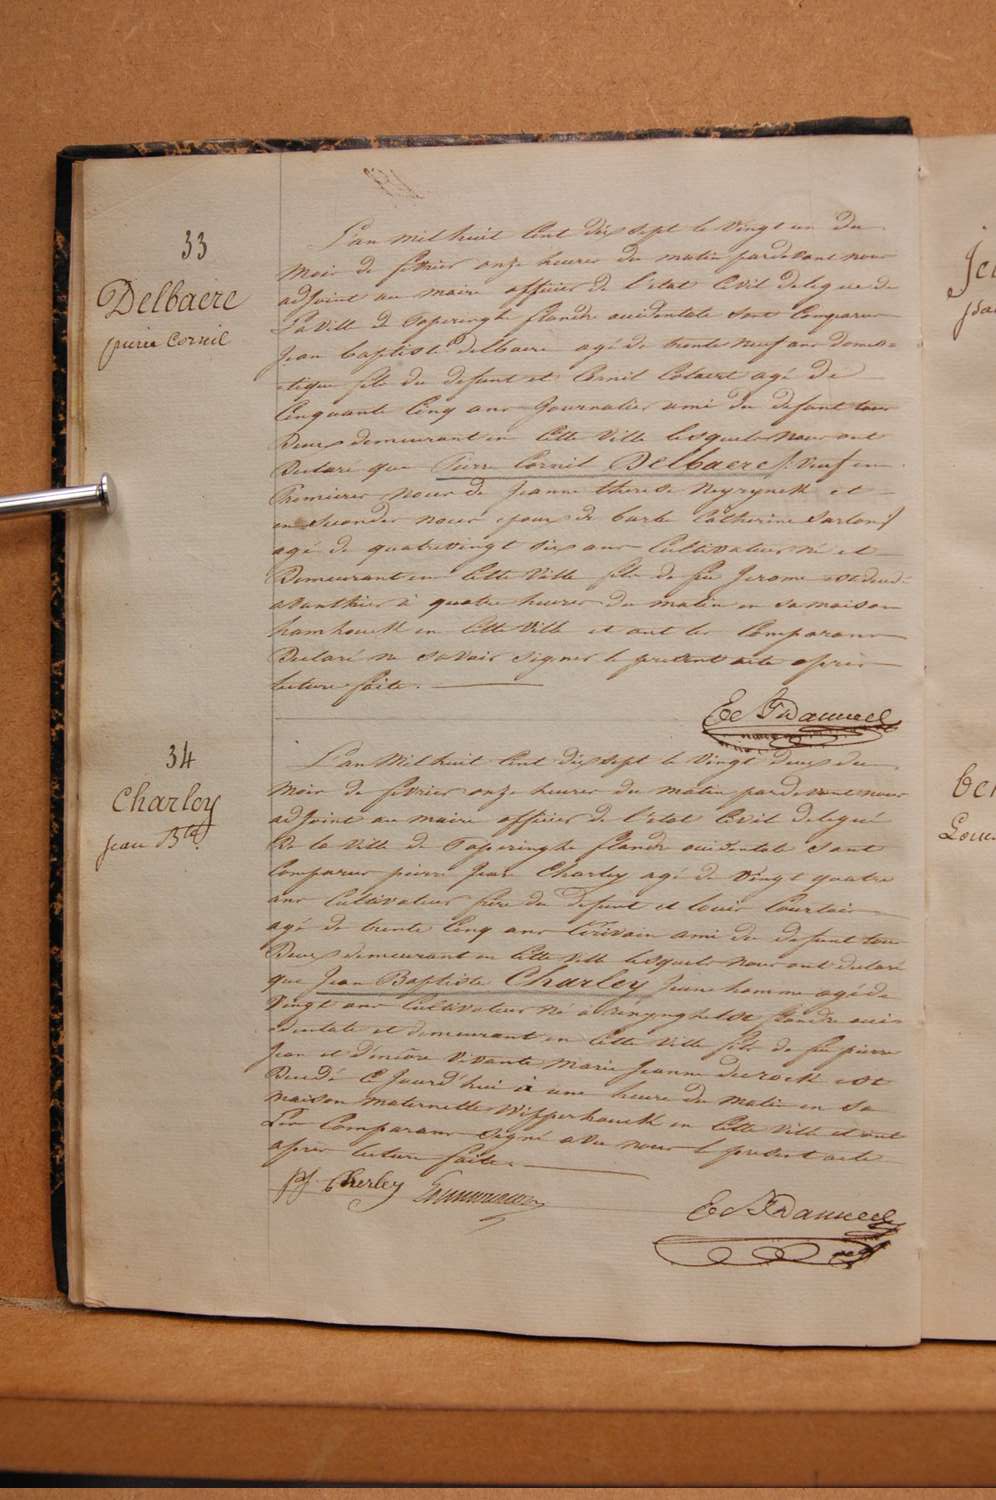 33
Delbaere
pierre Cornil
L'an mil huit Cent dix sept le vingt un du
mois de fevrier onze heures du matin pardevant nous
adjoint au maire officier de l'etat Civil delegué de
La ville de Poperinghe flandre occidentale sont Comparus
Jean baptiste delbaere agé de trente neuf ans domes-
-tique fils du defunt et Cornil Colaert agé de
Cinquante Cinq ans Journalier ami du defunt tous
Deux demeurant en Cette ville lesquels nous ont
Declaré que Pierre Cornil Delbaere veuf en
Premieres noces de Jeanne therese Neyrynck et
en secondes noces epoux de barbe Catherine
agé de quatrevingt six ans Cultivateur né et
Demeurant en Cette ville fils de feu Jerome est decedé
avanthier à quatre heures du matin en sa maison
hamhouck en Cette ville et ont les Comparans
Declaré ne savoir signer le present acte après
lecture faite.
34
Charley
Jean Bte
L'an Mil huit Cent dix sept le vingt deux du
mois de fevrier onze heures du matin pardevant nous
adjoint au maire officier de l'etat Civil delegué
De la ville de Poperinghe flandre occidentale sont
Comparus pierre Jean Charley agé de vingt quatre
ans Cultivateur frère du defunt et louis Courtois
agé de trente Cinq ans Ecrivain ami du defunt tous
Deux demeurant en Cette ville lesquels nous ont declaré
que Jean Baptiste Charley Jeune homme agé de
vingt ans Cultivateur né a renynghelst flandre occi-
-dentale et demeurant en Cette ville fils de feu pierre
Jean et d'encore vivante Marie Jeanne decrock est
Decedé Ce Jourd'hui à une heure du matin en sa
maison maternelle Wipperhouck en Cette ville et ont
Les Comparans signé avec nous le present acte
après lecture faite.
pj Cherley